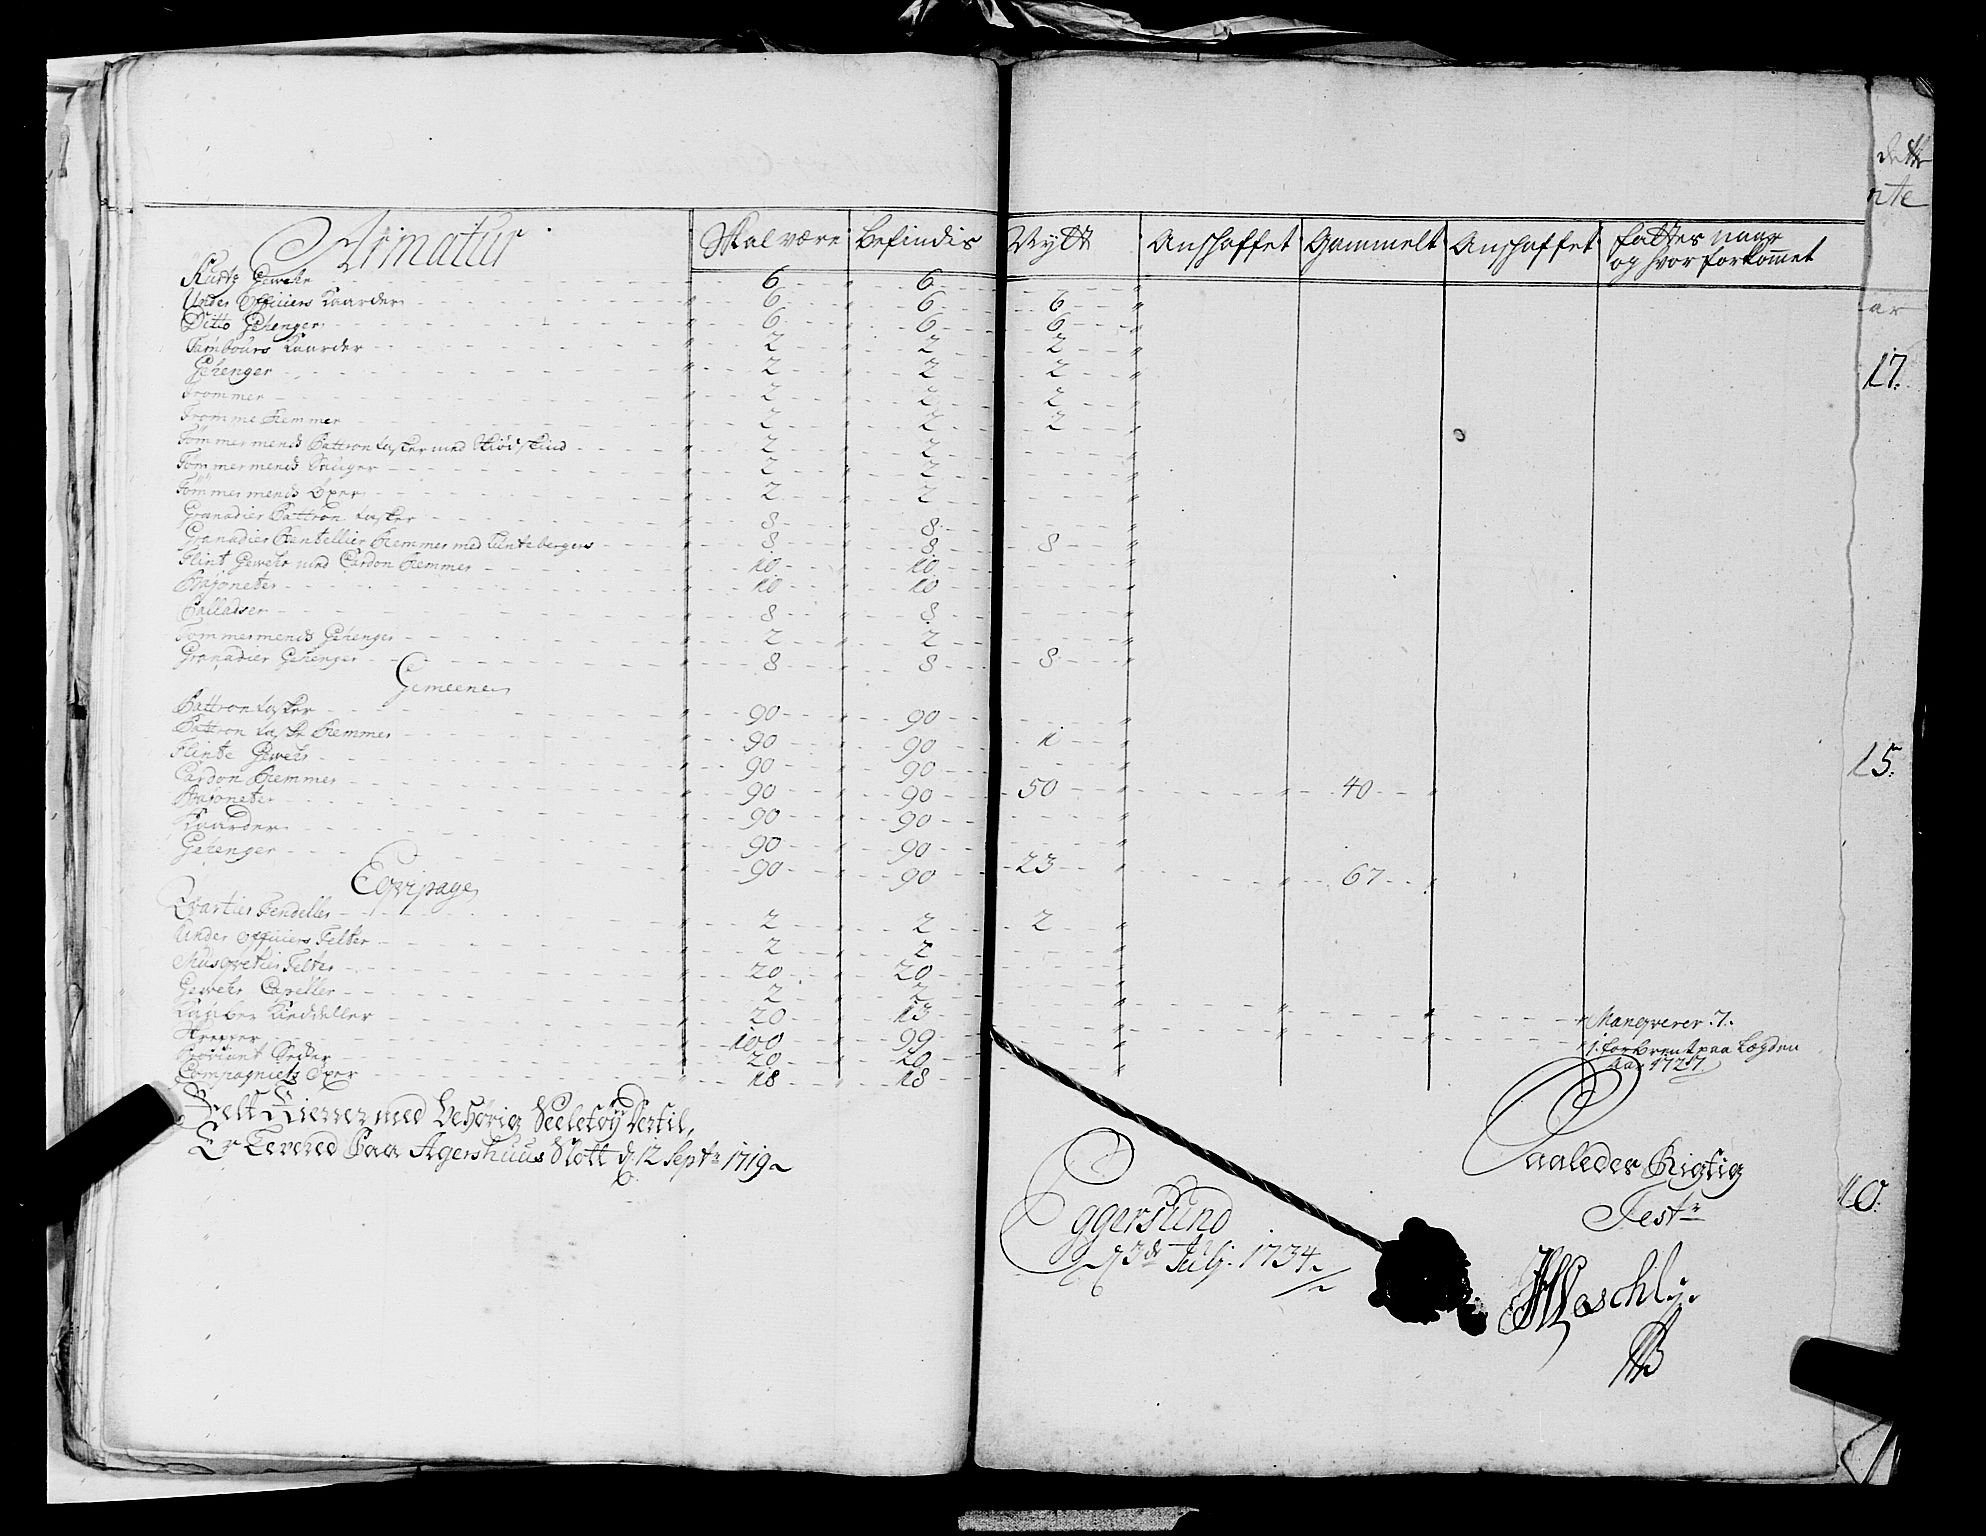 Armatur
Skal være Befindis Nytt Anshaffet Gammelt Anshaffet fattes naar
og hvor forkommet
Kurtz Gewehr 6 6
Under Officiers Kaarder 6 6 6
Ditto Gehenger 6 6 6
Tambours Kaarder 2 2 2
Gehenger 2 2 2
Trommer 2 2 2
Tromme Remmer 2 2 2
Tömmermends Pattron tasker med Skiöd skind 2 2
Tömmermends Sauger 2 2
Tömmermends Öxer 2 2
Granadier Pattron tasker 8 8
Granadier Bantellier Remmer med Luntebergers 8 8 8
Flint Gewehr med Cardon Remmer 10 10
Bajoneter 10 10
Palladser 8 8
Tömmermends Gehenger 2 2
Granadier Gehenger 8 8 8
Gemeene
Pattron tasker 90 90
Pattron task Remmer 90 90 1
Flinte Gewehr 90 90
Cardon Remmer 90 90 50 40
Bajoneter 90 90
Kaarder 90 90
Gehenger 90 90 23 67
Eqvipage
Qvartier Fendeller 2 2 2
Under Officiers Telter 2 2
Musqvetier Telter 20 20
Gewehr Capeller 2 2
Kaaber Kieddeller 20 13 Manqverer 7.
Krepper 100 99 1. forbrent paa Legden
Aar 1727
Proviant Sekker 20 20
Compagniets Öxer 18 18
Felt Kierrer med behörig Seeletöy dertil,
Er leveret Paa Agershuus Slott d. 12 Septr 1719
Saaledes Rigtig
Testr
Eggersund
d. 3de Julj. 1734
17.
15.
10.